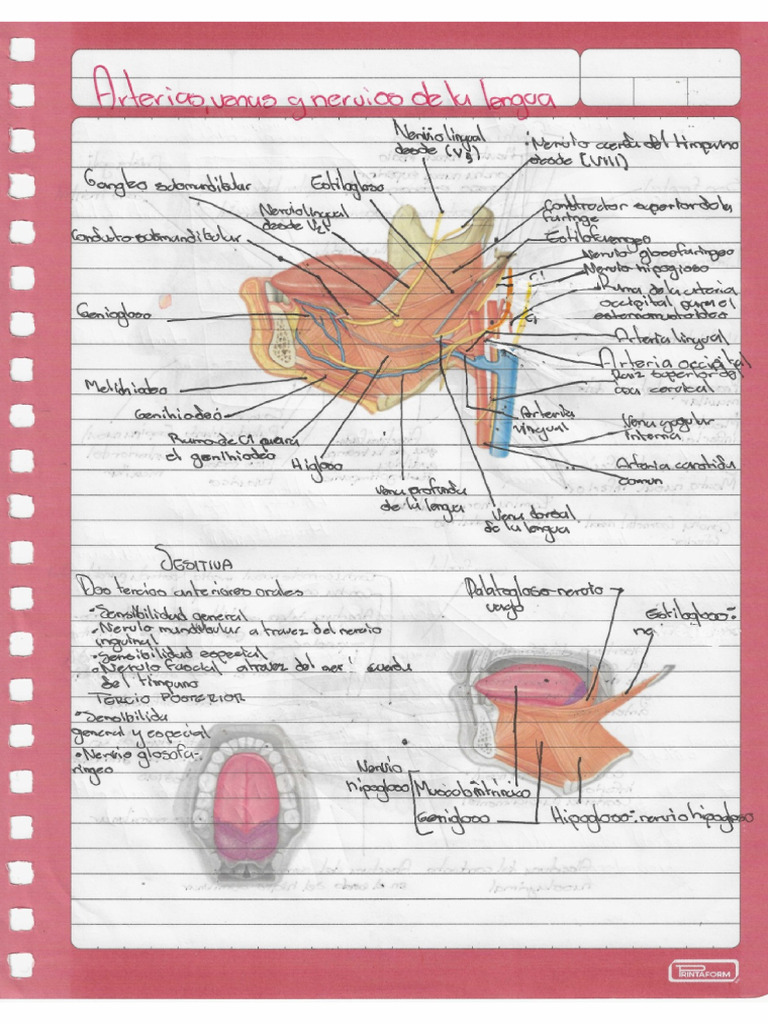 Arterias, venas y nervios de la lengua
Nervio lingual
desde (V3)
Nervio cuerda del timpano
desde (VIII)
Ganglio submandibular
Estilogloso
Nervio lingual
desde V2
Constrictor superior de la
faringe
Conducto submandibular
Estilofaringeo
Nervio glosofaringeo
Nervio hipogloso
C1
Rama de la arteria
occipital para el
esternomastoideo
Geniogloso
C1
Arteria lingual
Arteria occipital
Raiz superior del
asa cervical
Milohiodeo
Genihiodeo
Arteria
lingual
Vena yugular
interna
Rama de C1 para
el genihiodeo
Higloso
Arteria carotida
comun
vena profunda
de la lengua
Vena dorsal
de la lengua
SESITIVA
Dos tercios anteriores orales
•Sensibilidad general
•Nervio mundibular a travez del nervio
inguinal
•Sensibilidad especial
•Nervio facial atravez del cuerda
del timpano
TERCIO POSTERIOR
•Sensibilida
general y especial
•Nervio glosofa-
ringeo
Palatogloso-nervio
vago
Estilogloso-
Nervio
hipogloso
Musculo intrinsico
Genigloso
Hipogloso-nervio hipogloso
PRINTAFORM